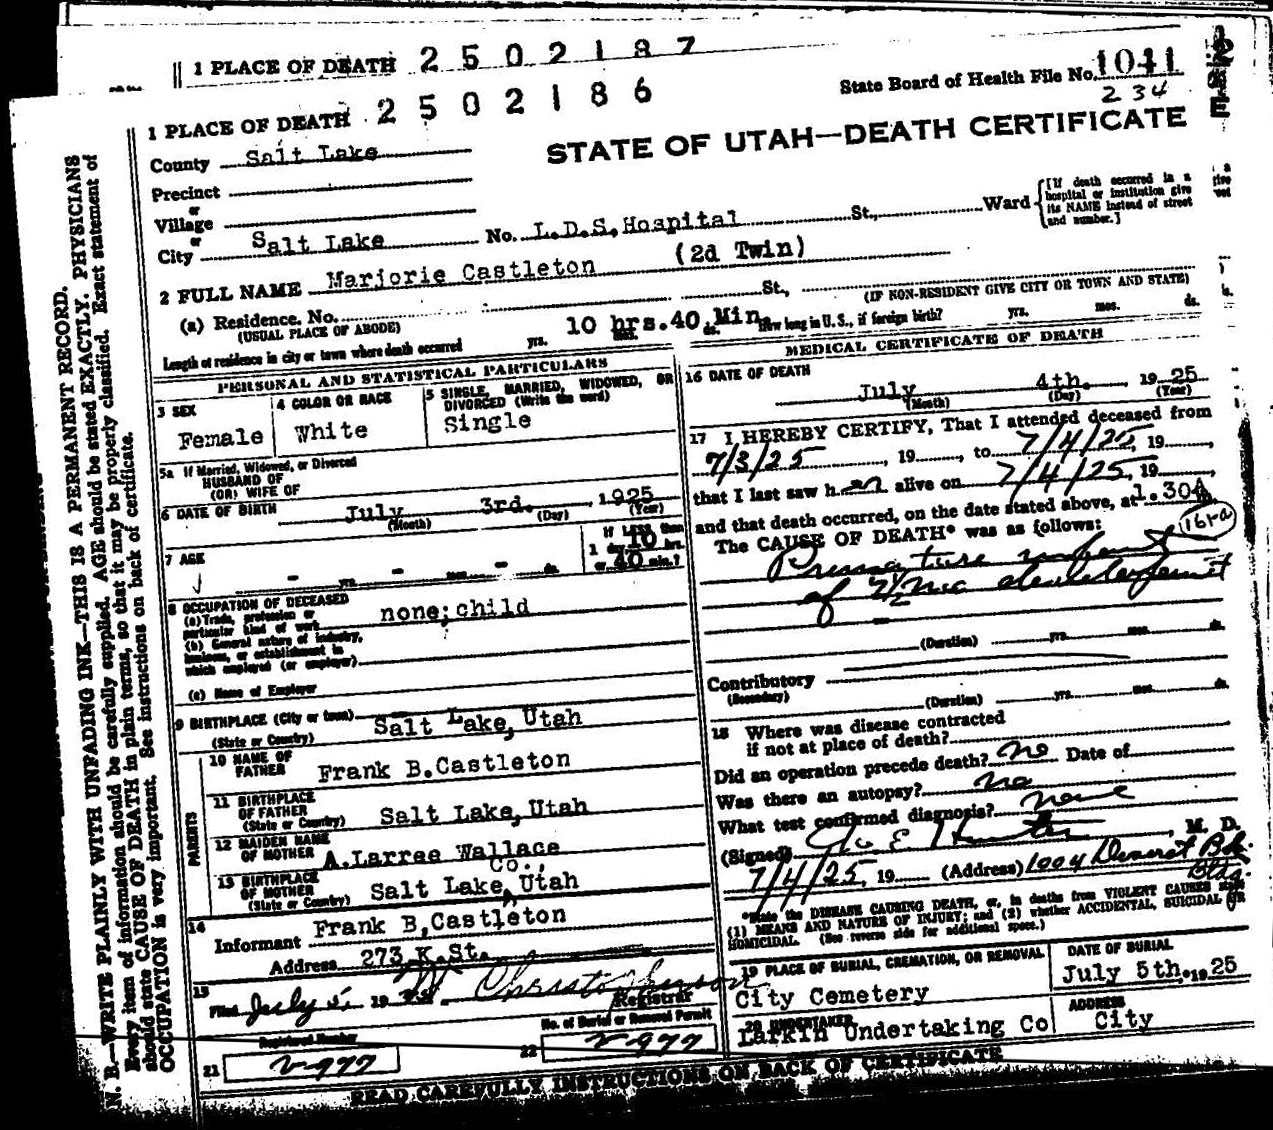 1 PLACE OF DEATH 2502187
State Board of Health File No. 1041
234
1 PLACE OF DEATH 2502186
STATE OF UTAH—DEATH CERTIFICATE
County Salt Lake
Precinct
or
Village
or
City Salt Lake No. L.D.S. Hospital St., Ward
[If death occurred in a hospital or institution give its NAME instead of street and number.]
2 FULL NAME Marjorie Castleton (2d Twin)
(a) Residence. No. St., (IF NON-RESIDENT GIVE CITY OR TOWN AND STATE)
(USUAL PLACE OF ABODE)
Length of residence in city or town where death occurred yrs. 10 hrs. 40 Min. How long in U. S., if foreign birth? yrs. mos. ds.
PERSONAL AND STATISTICAL PARTICULARS
3 SEX
Female
4 COLOR OR RACE
White
5 SINGLE, MARRIED, WIDOWED, OR DIVORCED (Write the word)
Single
5a If Married, Widowed, or Divorced
HUSBAND OF
(OR) WIFE OF
6 DATE OF BIRTH July 3rd. 1925
(Month) (Day) (Year)
7 AGE
- yrs. - mos. - ds.
If LESS than
1 day, 10 hrs.
or 40 min.?
8 OCCUPATION OF DECEASED
(a) Trade, profession or particular kind of work none; child
(b) General nature of industry, business, or establishment in which employed (or employer)
(c) Name of Employer
9 BIRTHPLACE (City or town) Salt Lake, Utah
(State or Country)
PARENTS
10 NAME OF FATHER Frank B. Castleton
11 BIRTHPLACE OF FATHER Salt Lake, Utah
(State or Country)
12 MAIDEN NAME OF MOTHER A. Larree Wallace
Co.,
13 BIRTHPLACE OF MOTHER Salt Lake, Utah
(State or Country)
14
Informant Frank B, Castleton
Address 273 K. St.
15
Filed July 5, 19 Registrar
Registered Number
21 2977
No. of Burial or Removal Permit
22 2977
MEDICAL CERTIFICATE OF DEATH
16 DATE OF DEATH
July 4th. 1925
(Month) (Day) (Year)
17 I HEREBY CERTIFY, That I attended deceased from
7/3/25, 19, to 7/4/25, 19,
that I last saw her alive on 7/4/25, 19,
and that death occurred, on the date stated above, at 1.30A
The CAUSE OF DEATH* was as follows:
161-a
Premature infant
of 7½ mo development
(Duration) yrs. mos. ds.
Contributory
(Secondary)
(Duration) yrs. mos. ds.
18 Where was disease contracted
if not at place of death?
Did an operation precede death? no Date of
Was there an autopsy? no
What test confirmed diagnosis? none
(Signed) E Hunter, M. D.
7/4/25, 19 (Address) 1004 Deseret Bk. Bldg.
*State the DISEASE CAUSING DEATH, or, in deaths from VIOLENT CAUSES state
(1) MEANS AND NATURE OF INJURY; and (2) whether ACCIDENTAL, SUICIDAL OR
HOMICIDAL. (See reverse side for additional space.)
19 PLACE OF BURIAL, CREMATION, OR REMOVAL
City Cemetery
DATE OF BURIAL
July 5th. 1925
20 UNDERTAKER
Larkin Undertaking Co
ADDRESS
City
READ CAREFULLY INSTRUCTIONS ON BACK OF CERTIFICATE
N. B.—WRITE PLAINLY WITH UNFADING INK—THIS IS A PERMANENT RECORD.
Every item of information should be carefully supplied. AGE should be stated EXACTLY. PHYSICIANS
should state CAUSE OF DEATH in plain terms, so that it may be properly classified. Exact statement of
OCCUPATION is very important. See instructions on back of certificate.